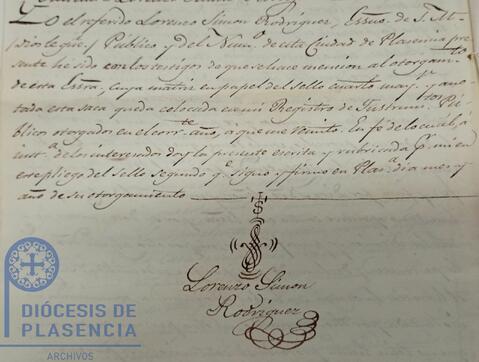 Yo el referido Lorenzo Simon Rodriguez, Essno. de S. M.
(Dios le gue.) Publico y del Numo. de esta Ciudad de Plasencia pre-
sente he sido con los testigos de que se hace mencion al otorgamto.
de esta Essra. cuya matriz en papel del sello cuarto mayr. y ano-
tada esta saca queda colocada en mi Registro de Instrumtos. Pú-
blicos otorgados en el corrte. año, a que me remito. En fe de lo cual, a
insta. de los interesados doy la presente escrita y rubricada pr. mi en
este pliego del Sello segundo qe. signo y firmo en Plasa. dia mes y
año de su otorgamiento
Lorenzo Simon
Rodriguez
DIÓCESIS DE
PLASENCIA
ARCHIVOS